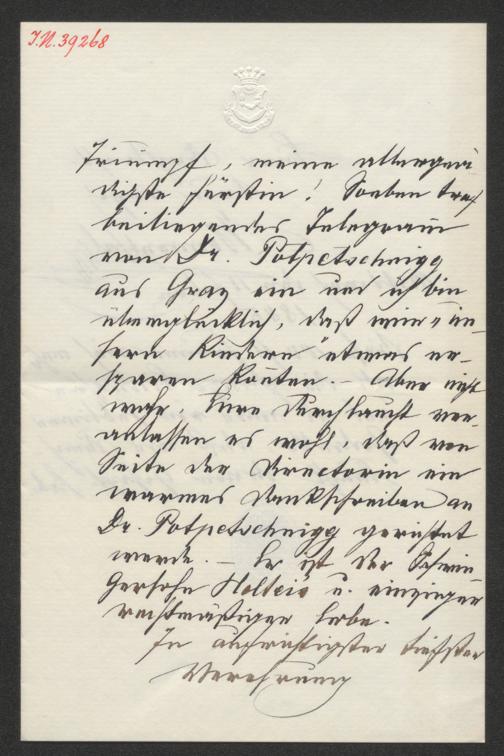 I.N. 39268
Triumpf, meine allergnä-
digste Fürstin! Soeben traf
beiliegendes Telegram
von Dr. Potpetschnigg
aus Graz ein und ich bin
überglücklich, daß wir "un-
sern Kindern" etwas er-
sparen konten. – Aber nicht
wahr Eure Durchlaucht ver-
anlassen es wohl, daß von
Seite der Directorin ein
warmes Dankschreiben an
Dr. Potpetschnigg gerichtet
werde. – Er ist der Schwie-
gersohn Holteis u. einziger
rechtmäßiger Erbe.
In aufrichtigster tiefster
Verehrung